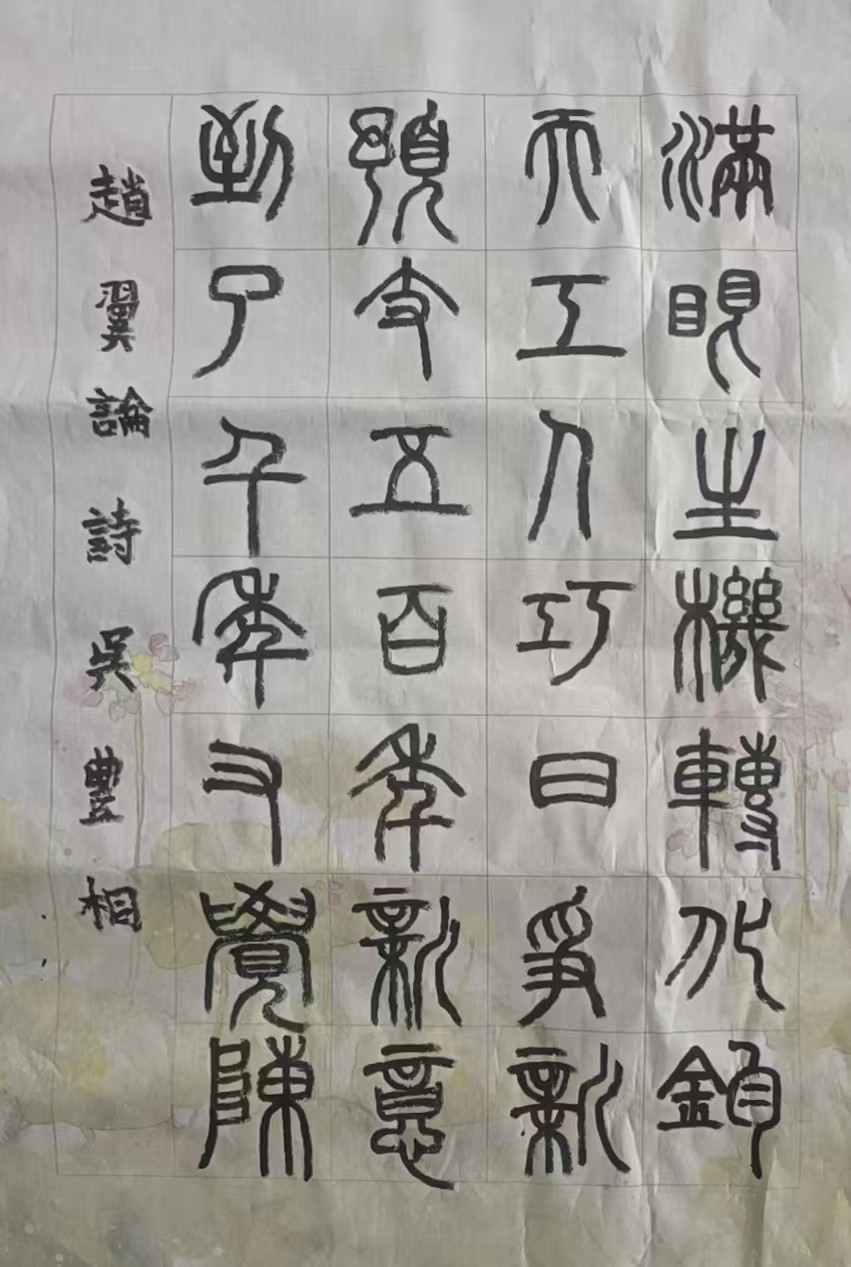 滿眼生機轉化鈞
天工人巧日爭新
預支五百年新意
到了千年又覺陳
趙翼論詩吳豊相